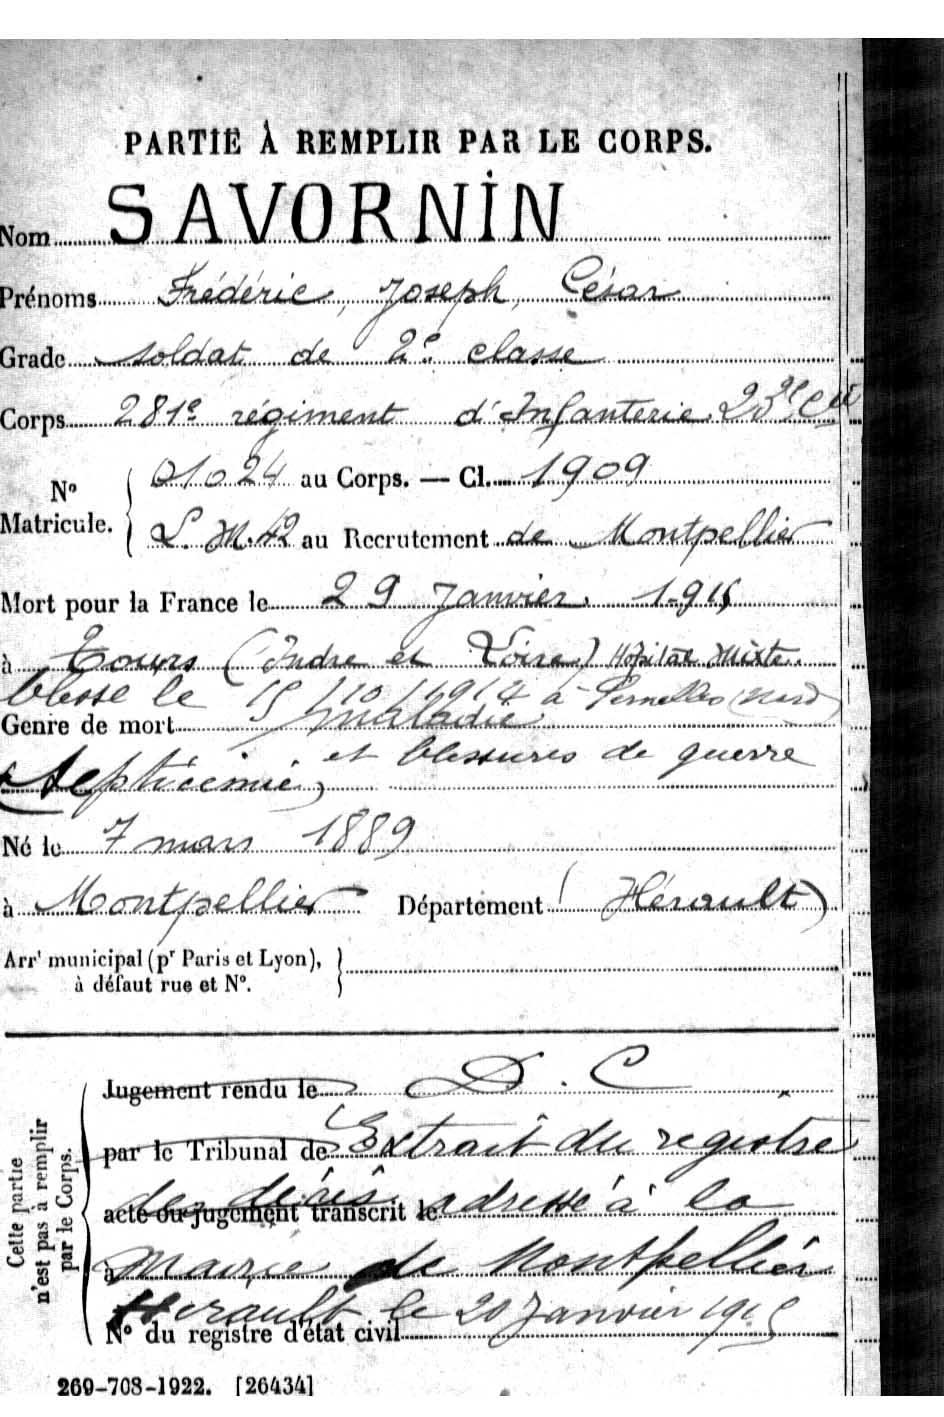 PARTIE À REMPLIR PAR LE CORPS.
Nom SAVORNIN
Prénoms Frédéric, Joseph, César
Grade soldat de 2e classe
Corps 281e régiment d'Infanterie 23e Cie
No Matricule. 01024 au Corps. — Cl. 1909
L.M.42 au Recrutement de Montpellier
Mort pour la France le 29 Janvier 1915
à Tours (Indre et Loire) Hôpital Mixte.
blessé le 15/10/1914 à (Nord)
Genre de mort maladie
et blessures de guerre
(septicémie)
Né le 7 mars 1889
à Montpellier Département (Hérault)
Arrt municipal (pr Paris et Lyon),
à défaut rue et No.
Cette partie
n'est pas à remplir
par le Corps.
Jugement rendu le D.C
par le Tribunal de Extrait du registre
des décès adressé à la
acte ou jugement transcrit le
à Mairie de Montpellier
Hérault le 20 Janvier 1915
No du registre d'état civil
269-708-1922. [26434]